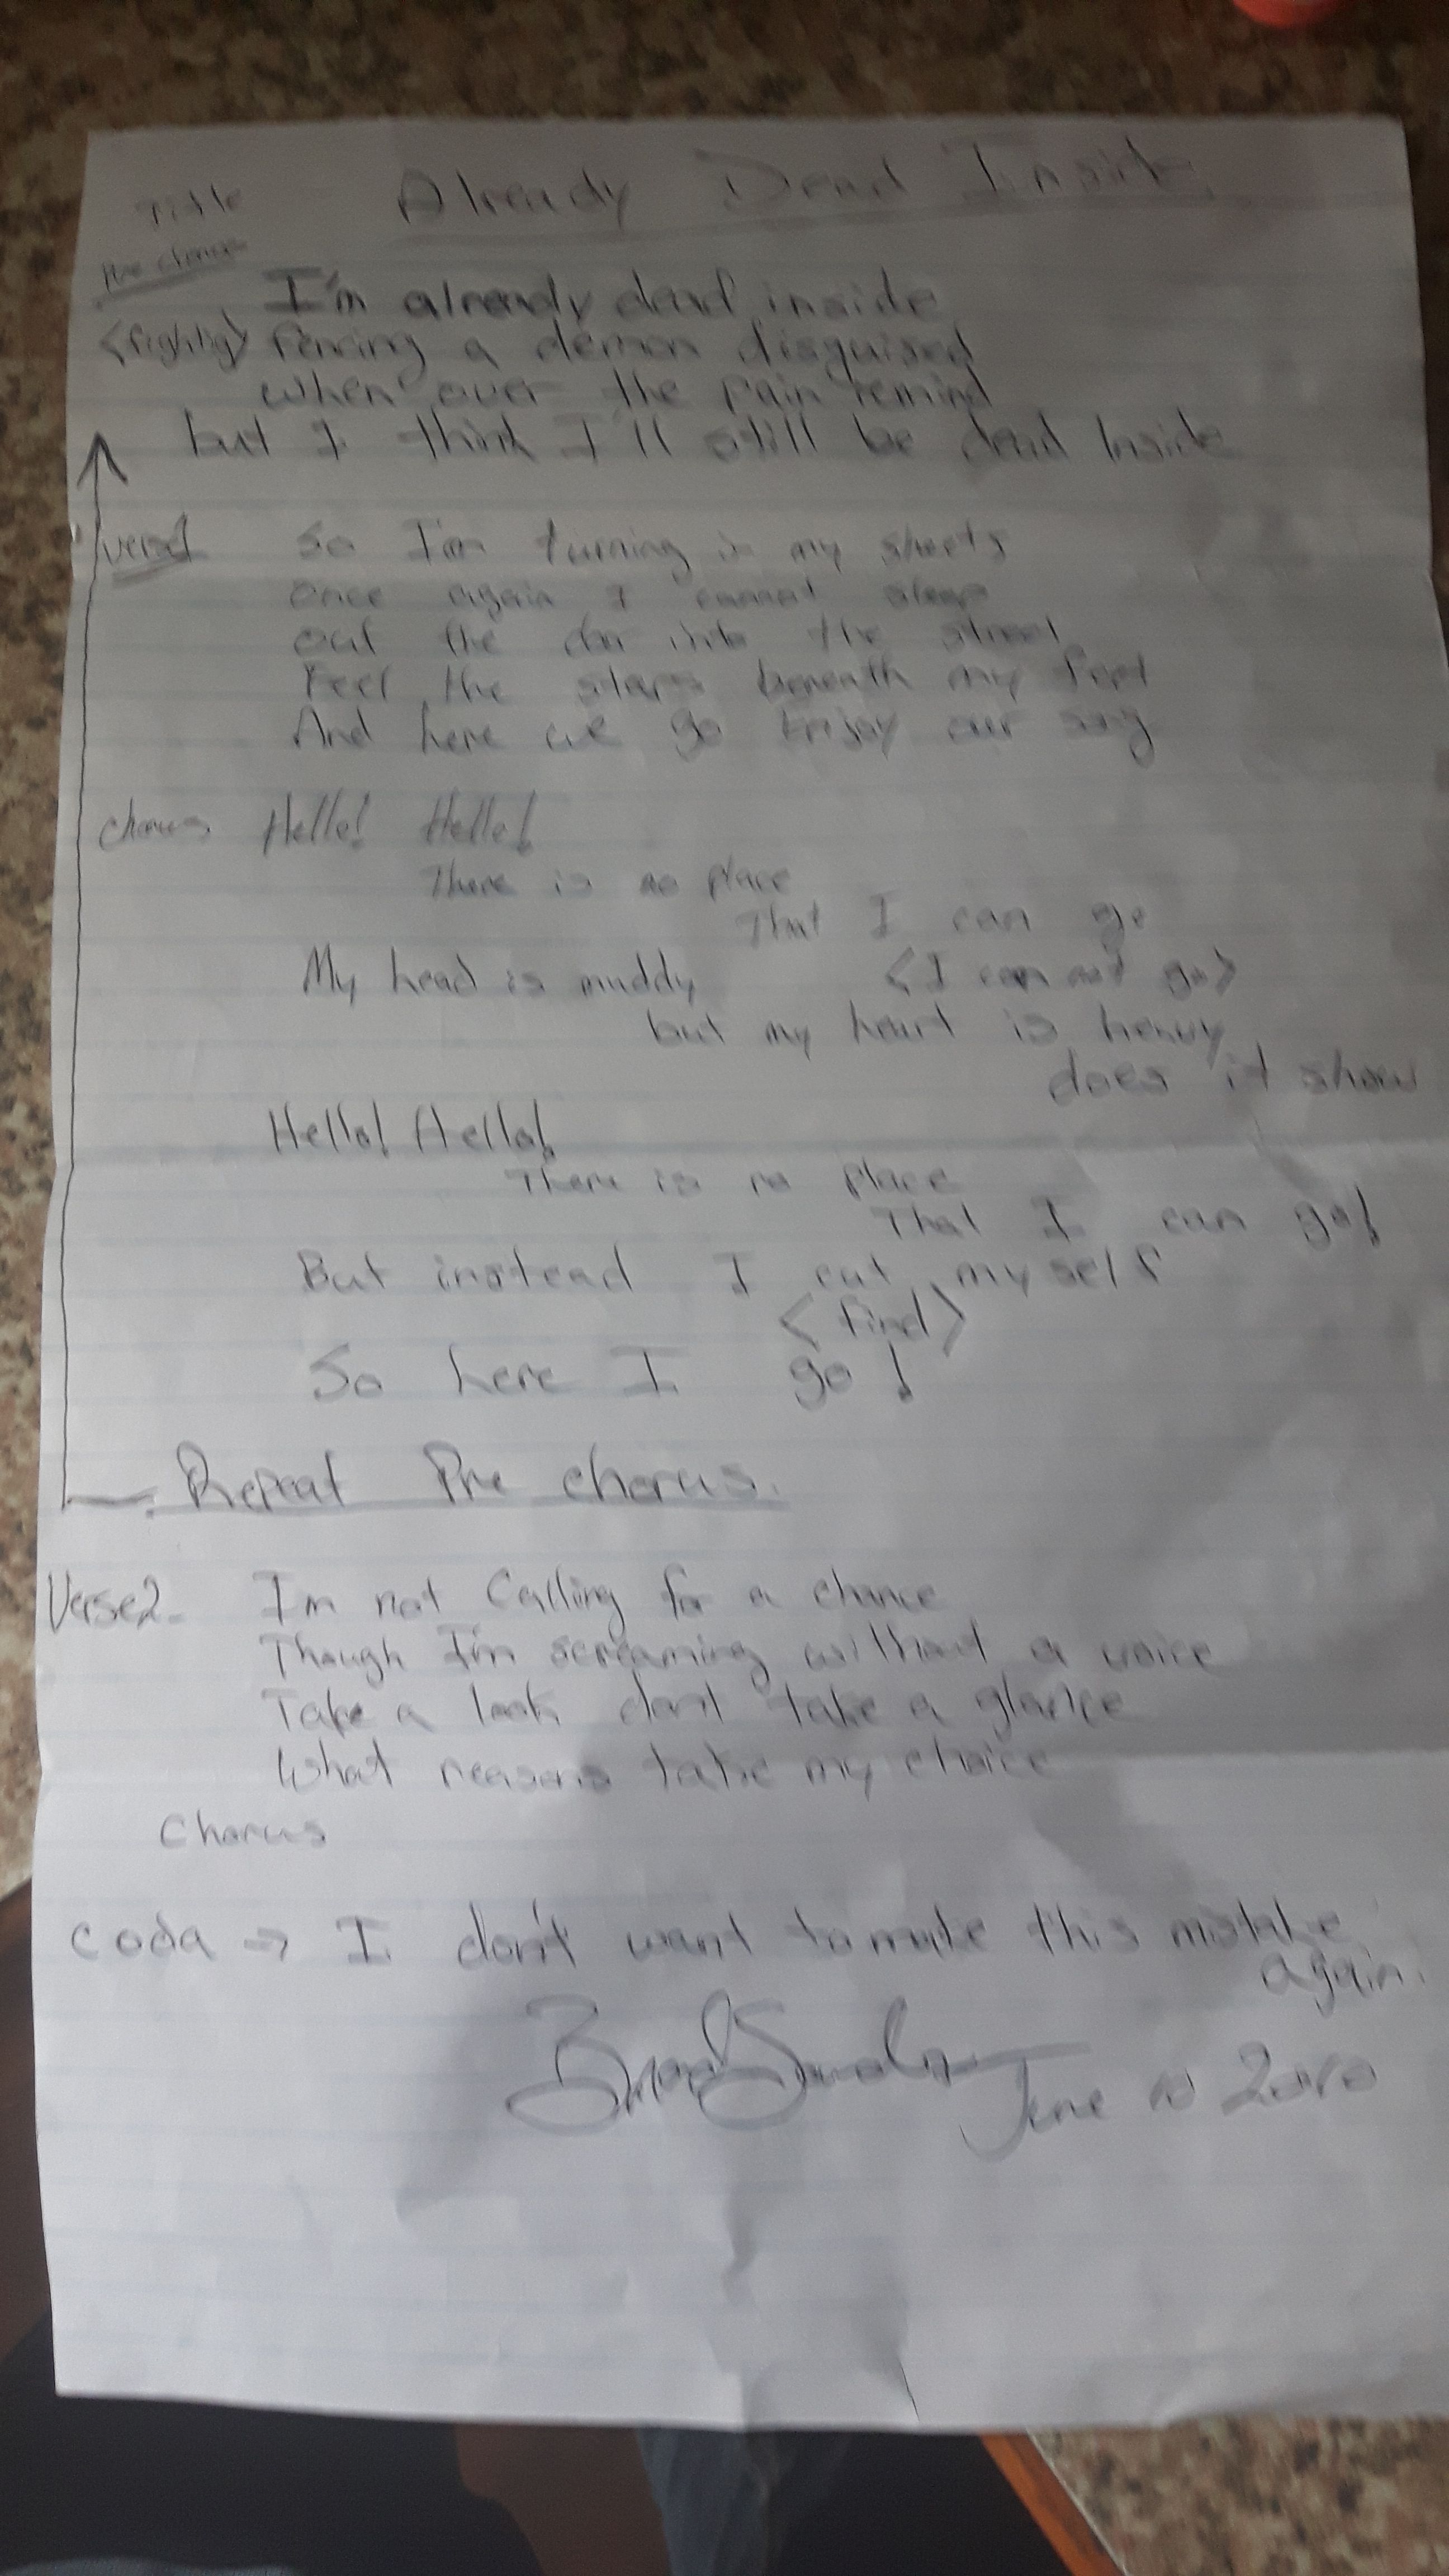 Title Already Dead Inside.
Pre chorus
I'm already dead inside
<fightig> fencing a demon disguised
when over the pain remind
but I think I'll still be dead Inside
verse1 So I'm turning in my sheets
once again I cannot sleep
out the door into the street
Feel the stars beneath my feet
And here we go Enjoy our song
chorus Hello! Hello!
There is no place
That I can go
My head is muddy <I can not go>
but my heart is heavy
does it show
Hello! Hello!
There is no place
That I can go!
But instead I cut myself
<find>
So here I go!
Repeat Pre chorus.
Verse2- I'm not Calling for a chance
Though I'm screaming without a voice
Take a look dont take a glance
What reasons take my choice
Chorus
coda => I don't want to make this mistake
again.
June 10 2010